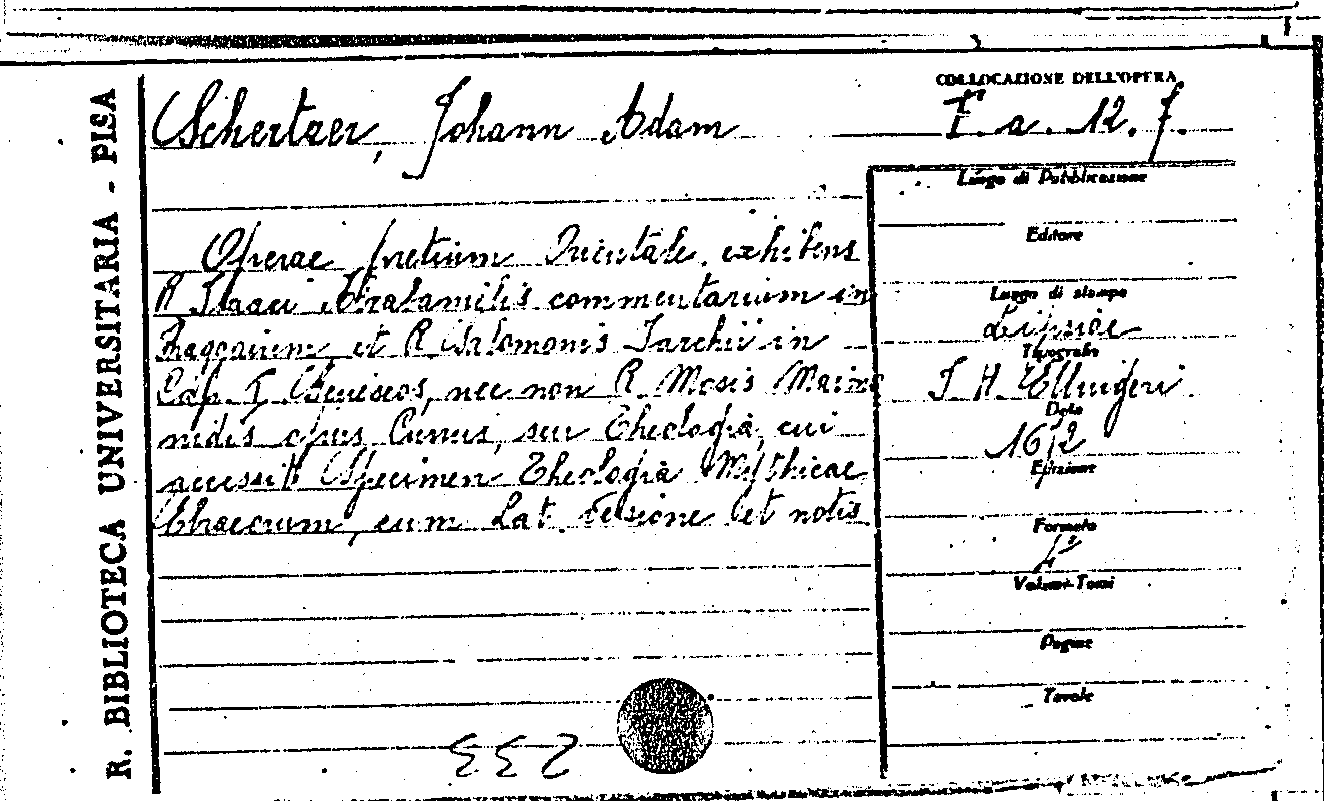 R. BIBLIOTECA UNIVERSITARIA - PISA
Schertzer, Johann Adam
COLLOCAZIONE DELL'OPERA
F. a. 12. 7.
Luogo di Pubblicazione
Editore
Luogo di stampa
Lipsiae
Tipografo
J. H. Ellingeri
Data
16 2
Edizione
Formato
4°
Volumi-Tomi
Pagine
Tavole
Operae pretium Orientale, exhibens
R Isaaci Abrabanielis commentarium in
et R Salomonis Jarchii in
Cap. I, Geneseos, nec non R. Mosis Maimo
nidis opus Currus, seu Theologia, cui
accessit Specimen Theologia Mythicae
Ebraeorum, cum Lat. versione et notis
233